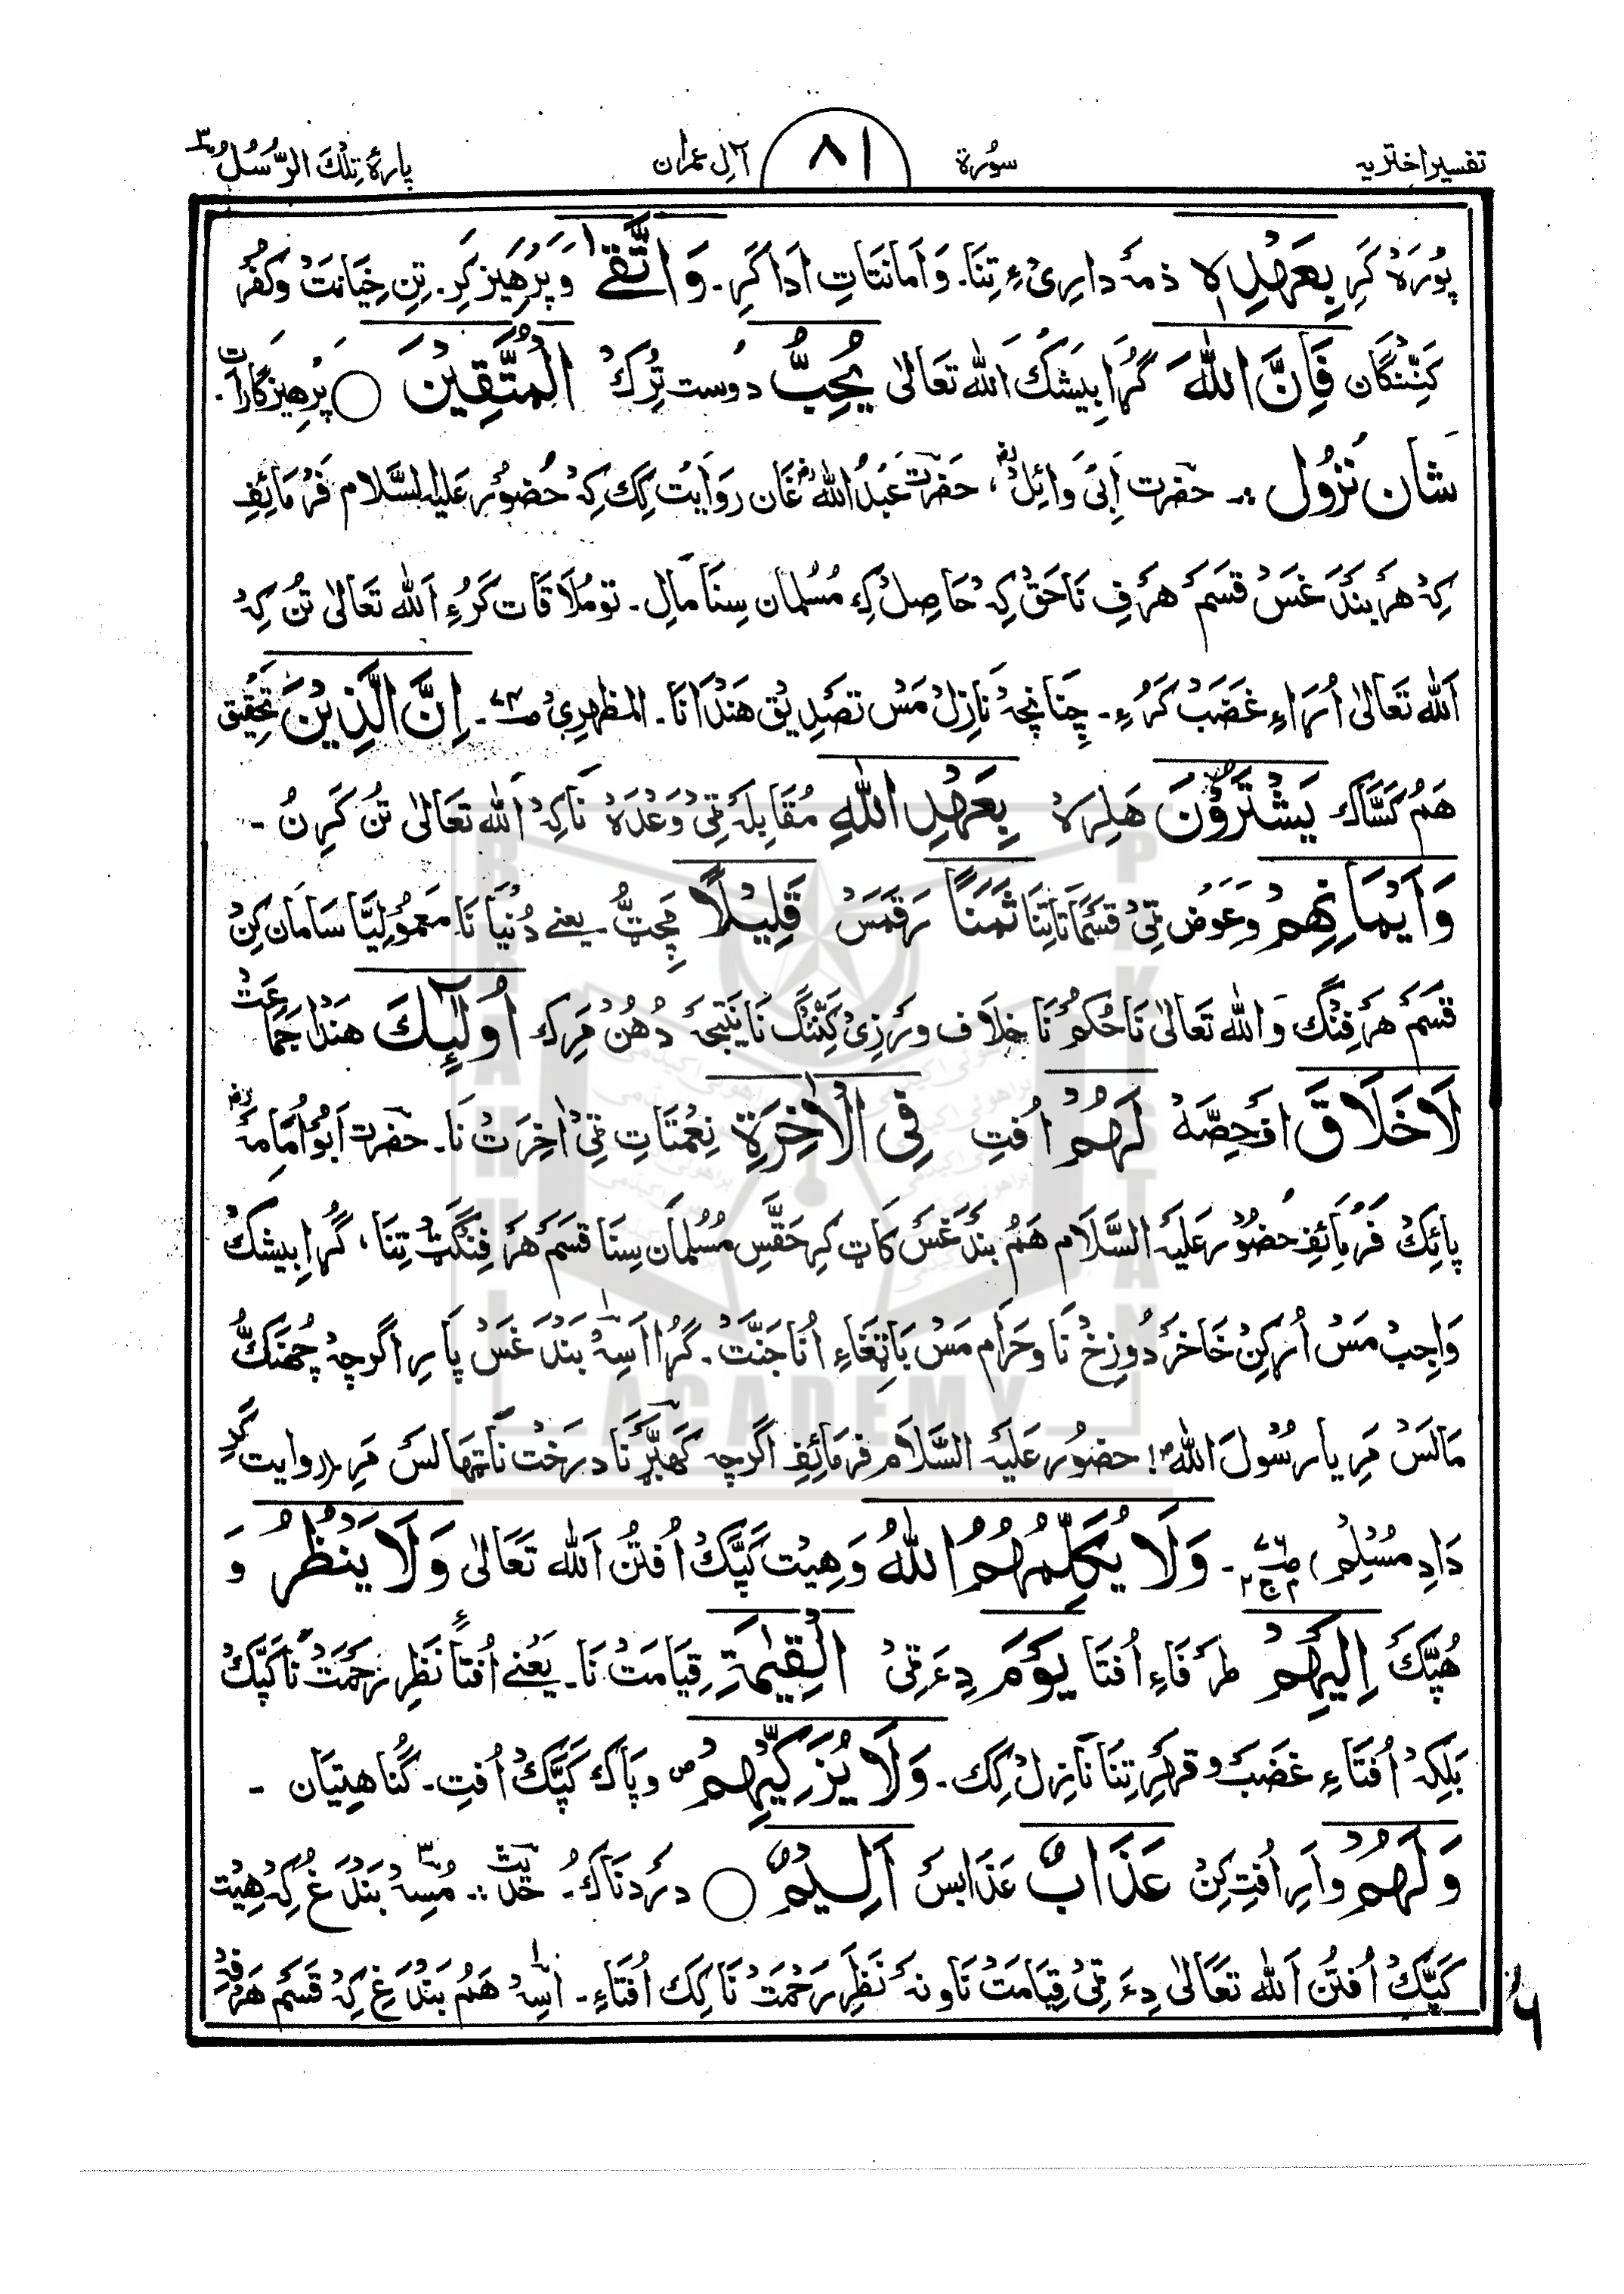 تفسیر اختریہ سُورۃ ٨١ آلِ عمران پارۂ تِلْکَ الرُّسُلُ ٣
پُورَہْ کَرِ بِعَهْدِهٖ ذمہ داریِ ءِ تِنَا۔ وَ اَمانتَاتِ اَدا کَرِ۔ وَاتَّقٰے وَ پَرْهِیز کَرِ۔ تِنِ خِیَانَتْ وکُفْر
کَنِنْگان فَاِنَّ اللّٰهَ گُڑَا بیشکْ اَللّٰه تَعَالیٰ یُحِبُّ دوست تِرِکْ الْمُتَّقِیْنَ ○ پرْهیزگاراتِ۔
شَانِ نُزُول :۔ حضرت اَبِی وَائِلؓ، حَضرت عَبدُ اللهؓ غَان روَایَت کِکْ کِہْ حُضُوْر عَلیہ السَّلام فَرْمَائِفِ
کِہْ هَرْ بَنْدَغَسْ قَسَمْ هَرَفِ نَاحَقْ کِہْ حَاصِلْ کِہ مُسُلمان سِنَا مَالِ۔ تو مُلَاقَات کَرُءِ اَللّٰه تَعَالیٰ تُنْ کِہْ
اَللّٰه تَعَالیٰ اُرَاءِ غَضَبْ کَرُءِ۔ چنَانچہْ نَازِلْ مَسْ تصَدِیْق هَنْدَانَا۔ المظہری ۔ اِنَّ الَّذِیْنَ تحقِیق
هَمْ کَسَّاکْ یَشْتَرُوْنَ هَلِرَہْ بِعَهْدِ اللّٰهِ مُقَابلَہ ٹِیْ وَعْدَہْ نَا کِہْ اَللّٰه تَعَالیٰ تُنْ کَرِنُ۔
وَاَیْمَانِهِمْ وَعَوَض ٹِیْ قَسَمَاتَا تِنَا ثَمَنًا رَقَمَسْ قَلِیْلًا مَچِٹُّ یعنے دُنْیَا نَا مَعمُولِیَّا سَامَان کِنْ
قَسَمْ هَرَفِنْگ وَاللّٰه تَعَالیٰ نَا حُکمْ نَا خِلَاف وَرْزِیْ کَنِّنگْ نَا نَتِیجَہْ دُهُنْ مَرِک اُولٰٓئِكَ هَنْدَا جَمَاعَتْ
لَاخَلَاقَ اَفْ حِصَّہْ لَهُمْ اُفتِ فِی الْاٰخِرَةِ نِعْمَتَاتِ ٹِیْ اٰخِرَتْ نَا۔ حضرت اَبُو اُمَامَہؓ
پائِکْ فَرْمَائِفِ حُضُوْر عَلَیْہِ السَّلَام هَمْ بَنْدَغَسْ کَاتِ کِرِ حَقَّسِ مُسُلمان سِنَا قَسَمْ هَرَفِنگَٹْ تِنَا، گُڑَا بیشکْ
وَاجِبْ مَسْ اُرْکِنْ خَاخَرْ دُوزِخْ نَا وَحَرَام مَسْ بَاتِغَاءِ اُنَا جَنَّتْ۔ گُڑا اَسِہْ بَنْدَغَسْ پَارِ اگرچہ چُهنَکُّ
مَالَسْ مَرِ یارسُولَ اللّٰهؐ! حضُوْر عَلَیْہِ السَّلَام فرمَائِفِ اگرچہ کَهیَّرْنَا درخْت نَاٹہَالَسْ مَرِ (روایت کَرِ
دَادِ مُسْلِمْ) ۔ وَلَا یُکَلِّمُهُمُ اللّٰهُ وَهِیْت کَپَّکْ اُفتُنْ اَللّٰه تَعَالیٰ وَلَا یَنْظُرُ وَ
هُپَّکْ اِلَیْهِمْ طرَفَاءِ اُفتَا یَوْمَ دِءَ ٹِیْ الْقِیٰمَةِ قِیَامَتْ نَا۔ یَعنے اُفتَا نَظرِ رَحمَتْ نَا کَپَّکْ
بَلکِہْ اُفتَاءِ غَضَبْ وقَهرِ تِنَا نَازِلْ کِک۔ وَلَا یُزَکِّیْهِمْ وپَاک کَپَّکْ اُفتِ۔ گُنَاهتِیَان ۔
وَلَهُمْ وَارِ اُفتِ کِنْ عَذَابٌ عَذَابَسْ اَلِیْمٌ ○ دَرْدنَاکْ۔ حَدیث :۔ مُسِہْ بَنْدَغْ کِہْ هِیْت
کَپَّکْ اُفتُنْ اَللّٰه تعَالیٰ دِءَ ٹِیْ قِیَامَتْ نَا ونہْ نَظرِ رَحْمَتْ نَا کِک اُفتَاءِ۔ اَسِہْ هَمْ بَنْدَغِ کِہْ قَسَمْ هَرَفِرْ